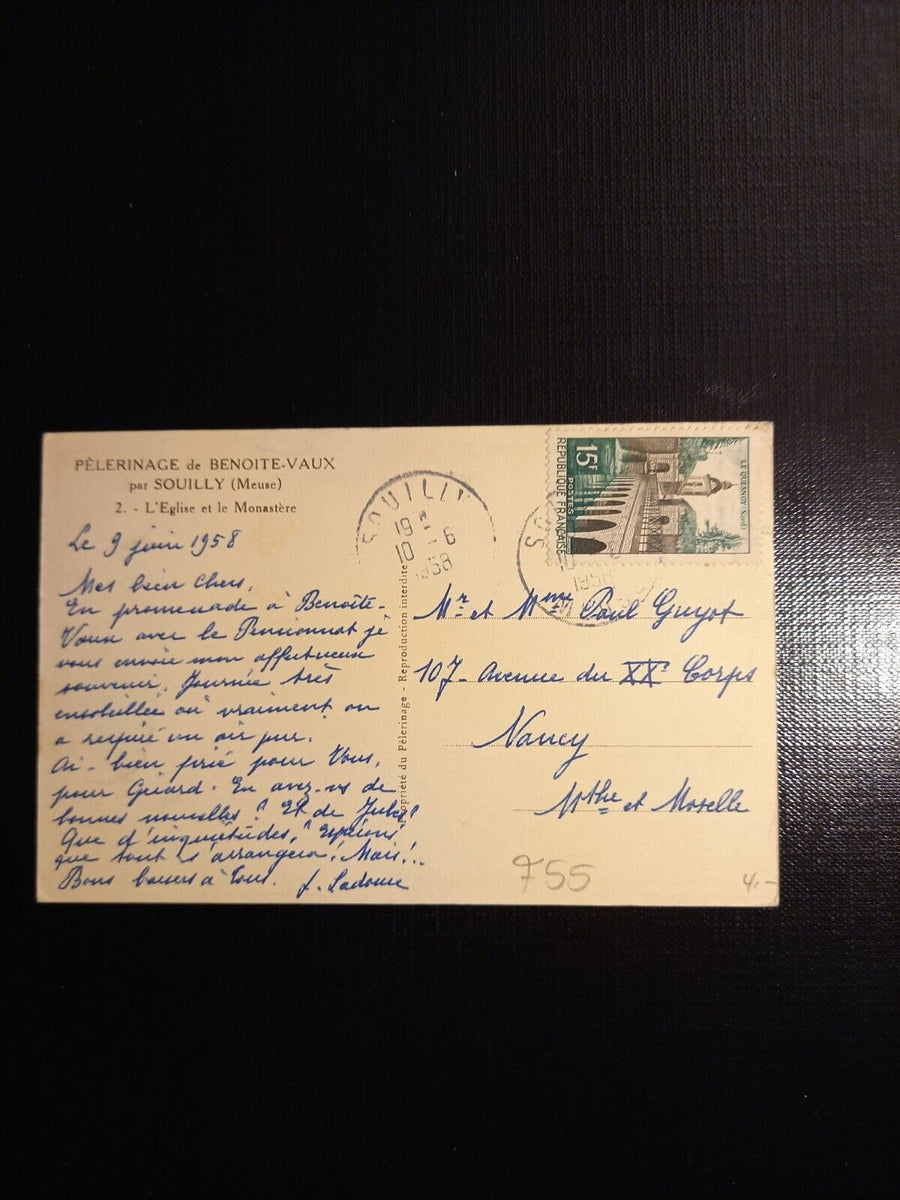 PÈLERINAGE de BENOITE-VAUX
par SOUILLY (Meuse)
2. - L'Eglise et le Monastère
Le 9 juin 1958
Mes bien chers,
En promenade à Benoîte-
Vaux avec le Pensionnat je
vous envoie mon affectueux
souvenir. Journée très
ensoleillée où vraiment on
a respiré un air pur.
Ai-bien prié pour Vous,
pour Gérard. En avez-vs de
bonnes nouvelles? Et de
Que d'inquiétudes, Espérons
que tout s'arrangera! Mais!..
Bons baisers à tous.
Propriété du Pèlerinage - Reproduction interdite
SOUILLY
19
10 - 6
1958
15F
POSTES
REPUBLIQUE FRANÇAISE
LE QUESNOY (Nord)
Mr et Mme Paul Guyot
107 - Avenue du XXe Corps
Nancy
Mthe et Moselle
755
4,-